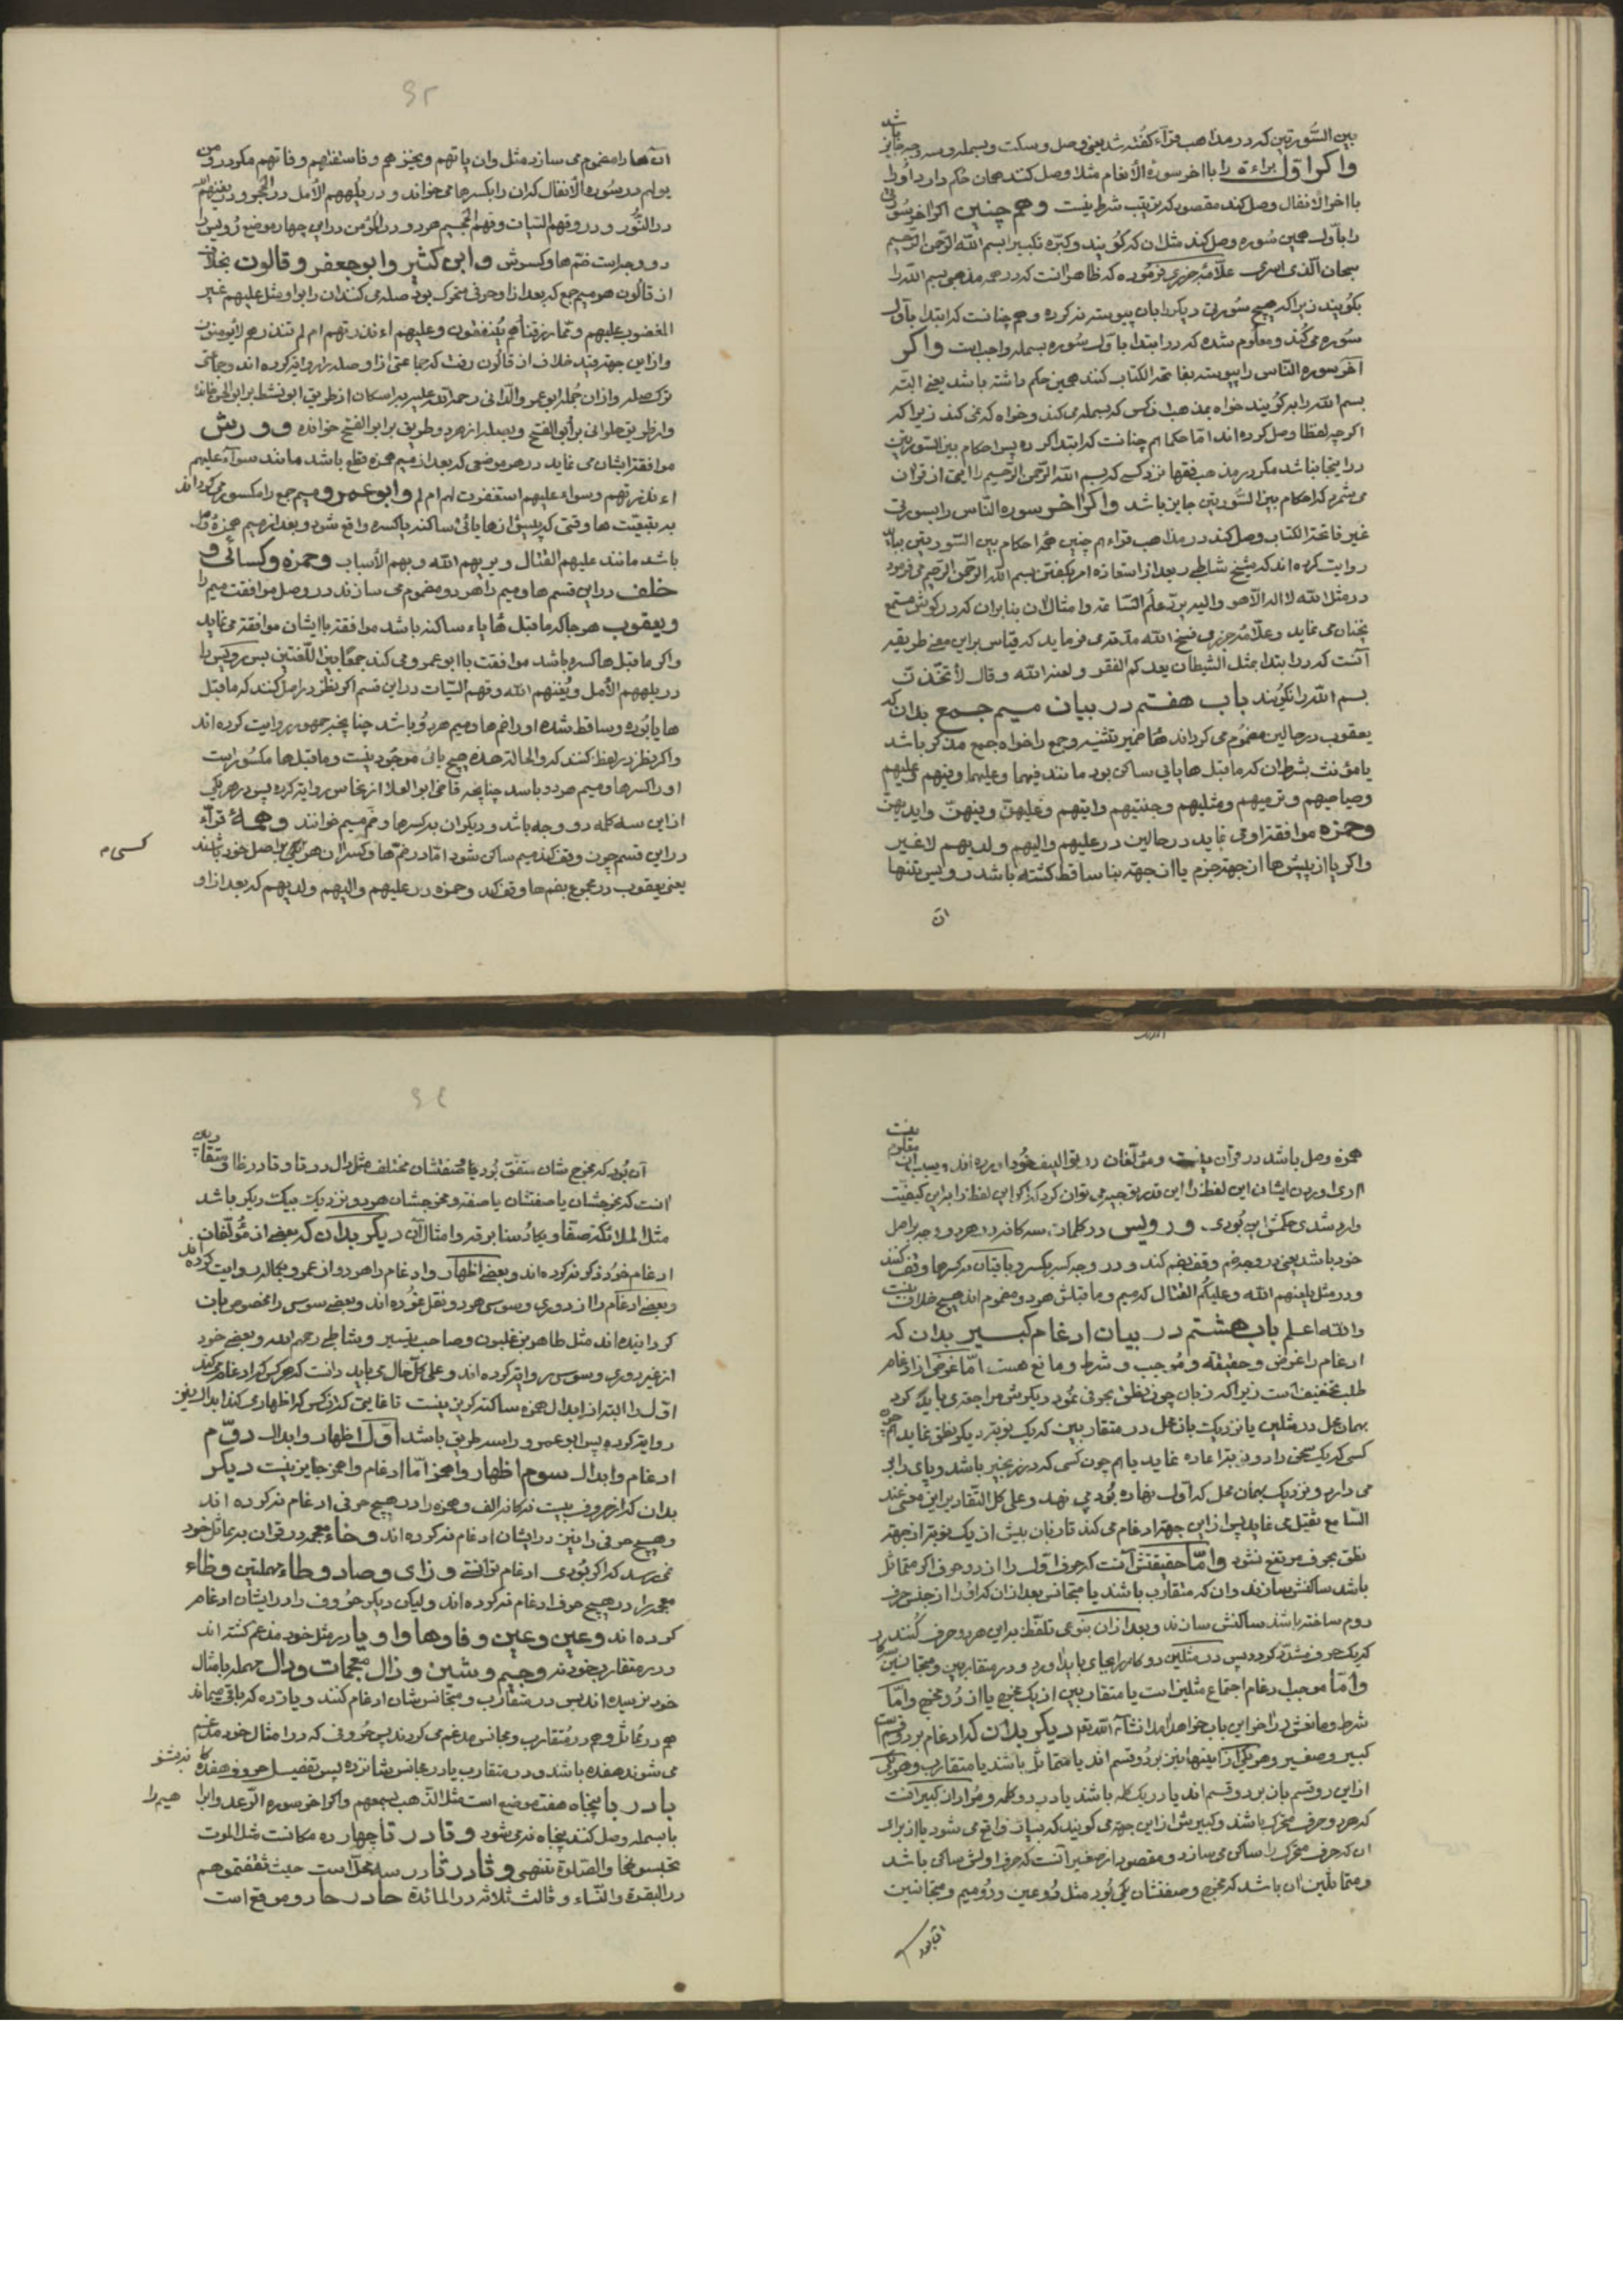 بین السّورتین که در مذاهب قرّاء گفته شد یعنی وصل و سکت و بسمله و سه وجه جایز باشد
واکر اوّل براءة را باآخر سورهٔ الأنعام مثلا وصل کنند همان حکم دارد
باآخر الانفال وصل کند مقصود که ترتیب شرط نیست وهم چنین اکر آخر سورتی
را باوّل همین سُوره وصل کند مثل ان که کُویند وکبّره تکبیرا بسم اللّه الرّحمن الرّحیم
سبحان الّذی اسری علّامه جزری فرمُوده که ظاهر انست که در همه مذهبی بسم اللّه را
بکُویند زیرا که هیچ سُورتی دیکر را بان پیوسته نکرده وهم چنانست که ابتدا باوّل
سُوره می کُند ومعلُوم شده که در ابتدا باوّل سُوره بسمله واجبست واکر
آخر سوره النّاس را پیوسته بفاتحة الکتاب کنند همین حکم داشته باشد یعنی البتّه
بسم اللّه را بر کُویند خواه بمذهب انکس که بسمله می کند وخواه که نمی کند زیرا که
اکر چه لفظا وصل کرده اند امّا حکما هم چنانست که ابتدا کرده پس احکام بین السّورتین
در اینجا نباشد مکر در مذهب فقها نزد کسی که بسم اللّه الرّحمن الرّحیم را آیتی از قران
می شمرد که احکام بین السّورتین جایز باشد واکر آخر سوره النّاس را بسورتی
غیر فاتحة الکتاب وصل کند در مذاهب قراء هم چنین همه احکام بین السّورتین بیاید
روایت کرده اند که شیخ شاطبی بعد از استعاذه امر بکفتن بسم اللّه الرّحمن الرّحیم می فرمود
در مثل اللّه لا اله الّا هو والیه یردّ علم السّاعة وامثال آن بنا بران که در کوش مستمع
چنان می نماید وعلّامه جزری فسح اللّه مدّته می فرماید که قیاس بر این معنی طریقه
آنست که در ابتدا بمثل الشیطان یعدکم الفقر ولعنه اللّه وقال لأتّخذنّ
بسم اللّه را نکویند باب هفتم در بیان میم جمع بدان که
یعقوب در حالین مضمُوم می کرداند هاء ضمیر تثنیه وجمع را خواه جمع مذکر باشد
یا مؤنث بشرط ان که ماقبل ها یائی ساکن بود مانند فیهما وعلیهما وفیهم وعلیهم
وصیاصیهم وترمیهم ومثلیهم وجنتیهم وایتیهم وعلیهنّ وفیهنّ وایدیهنّ
وحمزه موافقة او می نماید در حالین در علیهم والیهم ولدیهم لاغیر
واکر یا از پیش ها از جهة جزم یا از جهة بنا ساقط کشته باشد رویس تنها
ان
۶۳
آن ها را مضموم می سازد مثل وان یاتهم ویخزهم وفاستفتهم وفاتهم مکر در ومن
یولهم در سُوره الأنفال که ان را بکسر ها می خواند ودر یُلههم الأمل در الحجر ودر یغنهم اللّه
در النُّور ودر وقهم السّیات وقهم الجحیم هر دو در المؤمن در این چهار موضع رُویس را
دو وجه است ضمّ ها وکسرش وابن کثیر وابو جعفر وقالون بخلاف
از قالُون هر میم جمع که بعد از او حرفی متحرک بود صله می کنند ان را بواو مثل علیهم غیر
المغضوب علیهم وممّا رزقناهم یُنفقون وعلیهم ءانذرتهم ام لم تنذرهم لا یُومنون
وازاین جهة قید خلاف از قالُون رفت که جماعتی از او صله روایة کرده اند وجماعتی
ترک صله وازان جُمله ابو عمرو الدّانی رحمة اللّه علیه باسکان از طریق ابو نشیط بر ابو الحسن خوانده
واز طریق حلوانی بر أبو الفتح وبصله از هر دو طریق بر ابو الفتح خوانده وورش
موافقة ایشان می نماید در هر موضعی که بعد از میم همزه قطع باشد مانند سوآء علیهم
ءانذرتهم وسواء علیهم استغفرت لهم ام لم وابو عمرو میم جمع را مکسور می کرداند
به تبعیّت ها وقتی که پیش از ها یائی ساکنه یا کسره واقع شود وبعد از میم همزهٔ وصل
باشد مانند علیهم القتال ویریهم اللّه وبهم الأسباب وحمزه وکسائی و
خلف در این قسم ها ومیم را هر دو مضموم می سازند در وصل موافقت میم را
ویعقوب هر جا که ماقبل ها یاء ساکنه باشد موافقة باایشان موافقة می نماید
واکر ماقبل ها کسره باشد موافقت با ابو عمرو می کند جمعًا بین اللّغتین پس رویس را
در یلههم الأمل ویُغنهم اللّه وقهم السّیات در این قسم اکر نظر در اصل کنند که ماقبل
ها یا بُوده وساقط شده او را ضم ها ومیم هر دُو باشد چنانچه جمهور روایت کرده اند
واکر نظر در لفظ کنند که والحالة هذه هیچ یائی موجُود نیست وماقبل ها مکسُور است
او را کسر ها ومیم هر دو باشد چنانچه قاضی ابو العلا از نخاس روایة کرده پس در هر یکی
از این سه کلمه دو وجه باشد ودیکران بکسر ها وضم میم خوانند وهمهٔ قرّاء
در این قسم چون وقف کنند میم ساکن شود امّا در ضمّ ها وکسر ان هر یکی بر اصل خود باشند
یعنی یعقوب در مجموع بضم ها وقف کند وحمزه در علیهم والیهم ولدیهم که بعد از او
همزه وصل باشد در قرآن نیست ومؤلّفان در توالیف خُود اورده اند
از برای اوردن ایشان این لفظ را این قدر توجیه می توان کرد که اکر این لفظ را بر این کیفیّت
وارد شدی حکمش این بُودی ورویس در کلمات سه کانه در هر دو وجه بر اصل
خود باشد یعنی در وجه ضم وقف بضم کند ودر وجه کسر بکسر وباقیان بکسر ها وقف کنند
ودر مثل یلعنهم اللّه وعلیکُم القتال که میم وماقبلش هر دو مضموم اند هیچ خلاف نیست
واللّه اعلم باب هشتم در بیان ادغام کبیر بدان که
ادغام را غرض وحقیقه ومُوجب وشرط ومانع هست امّا غرض از ادغام
طلب تخفیف است زیرا که زبان چون نطق بحرفی نمُود دیکر بتش مراجعتی باید کرد
بهمان محل در مثلین یا نزدیک بان محل در متقاربین که یک نوبة دیکر نطق نماید هم چو
کسی که یک سخن را دو نوبة اعاده نماید یا هم چون کسی که در زنجیر باشد وپای را بر
می دارد ونزدیک بهمان محل که اوّل نهاده بُود می نهد وعلی کل التّقادیر این معنی عند
السّامع ثقیل می نماید پس از این جهة ادغام می کند تا زبان بیش از یک نوبة از جهة
نطق بحرف مرتفع نشود وامّا حقیقتش آنست که حرف اوّل را از دو حرف اکر متماثل
باشد ساکنش سازند وان که متقارب باشند یا متجانس بعد از ان که او را از جنس حرف
دوم ساخته باشد ساکنش سازند وبعد از ان بنوعی تلفّظ باین هر دو حرف کُنند
که یک حرف مشدّد کردد پس در مثلین دو کار بجای باید اورد ودر متقاربین ومتجانسین سه کار
وامّا موجب ادغام اجتماع مثلین است یا متقاربین از یک مخرج یا از دُو مخرج وامّا
شرط ومانعش در آخر این باب خواهد امد انشاءاللّه تعالی دیکر بدان که ادغام بر دو قسمست
کبیر وصغیر وهر یکی از اینها نیز بر دُو قسم اند یا متماثل باشد یا متقارب وهر یکی
از این دو قسم بان بر دو قسم اند یا در یک کلمه باشند یا در دو کلمه ومُراد از کبیر انست
که هر دو حرف متحرّک باشند وکبیرش از این جهة می کویند که بسیار واقع می شود یا از برای
ان که حرف متحرّک را ساکن می سازد ومقصود از صغیر آنست که حرف اولش ساکن باشد
ومتماثلین ان باشد که مخرج وصفتشان یکی بُود مثل دُو عین ودُو میم ومتجانسین
۶٤
آن بُود که مخرج شان متّفق بُود واما صفتشان مختلف مثل دال در تا وتا در طا ومتقاربین
انست که مخرجشان یا صفتشان یا صفة ومخرجشان هر دو نزدیک بیک دیکر باشد
مثل الملائکة صفّا ویکادُ سنا برقه وامثال آن دیکر بدان که بعضی از مُؤلّفان
ادغام خود ذکر نکرده اند وبعضی اظهار وادغام را هر دو از عمرو بکماله روایت کرده اند
وبعضی ادغام را از دوری وسوسی هر دو نقل نموده اند وبعضی سوسی را مخصوص بان
کردانیده اند مثل طاهر بن غلبون وصاحب تیسیر وشاطبی رحمه اللّه وبعضی خود
از غیر دوری وسوسی روایة کرده اند وعلی کل حال می باید دانست که هر کس که ادغام می کند
اوّل را البتّه از ابدال همزه ساکنه کریز نیست تا غایتی که انکس که اظهار می کند ابدال نیز
روایة کرده پس ابو عمرو را سه طریق باشد اوّل اظهار وابدال دوّم
ادغام وابدال سوم اظهار وهمز امّا ادغام وهمز جایز نیست دیکر
بدان که از حروف بیست نه کانه الف وهمزه را در هیچ حرفی ادغام نکرده اند
وهیچ حرفی را نیز در ایشان ادغام نکرده اند وخاء معجمه در قران بمماثل خود
نمی رسد که اکر بُودی ادغام توانستی وزای وصاد وطاء مهملتین وظاء
معجمه را در هیچ حرف ادغام نکرده اند ولیکن دیکر حُروف را در ایشان ادغام
کرده اند وعین وغین وفا وها واو ویا در مثل خود مدغم کشته اند
ودر متقارب خود نه وجیم وشین وذال معجمات ودال مهمله بامثال
خود نرسیده اند پس در متقارب ومتجانس شان ادغام کنند ویازده که باقی میماند
هم در مُماثل وهم در مُتقارب ومجانس مدغم می کردند پس حُروفی که در امثال خود مدغم
می شوند هفده باشد ودر متقارب یا در مجانس شانزده پس تفضیل حروف هفده کانه بشنو
با در با پنجاه هفت موضع است مثل الذّهب بسمعهم واکر آخر سوره الرّعد وابراهیم را
بابسمله وصل کنند پنجاه نه می شود وتا در تا چهارده مکانست مثل الموت
تحبسونهما والصّلوة تنهی وثا در ثا در سه محل است حیث ثقفتموهم
در البقرة والنّساء وثالث ثلاثة در المائدة حا در حا دو موقع است